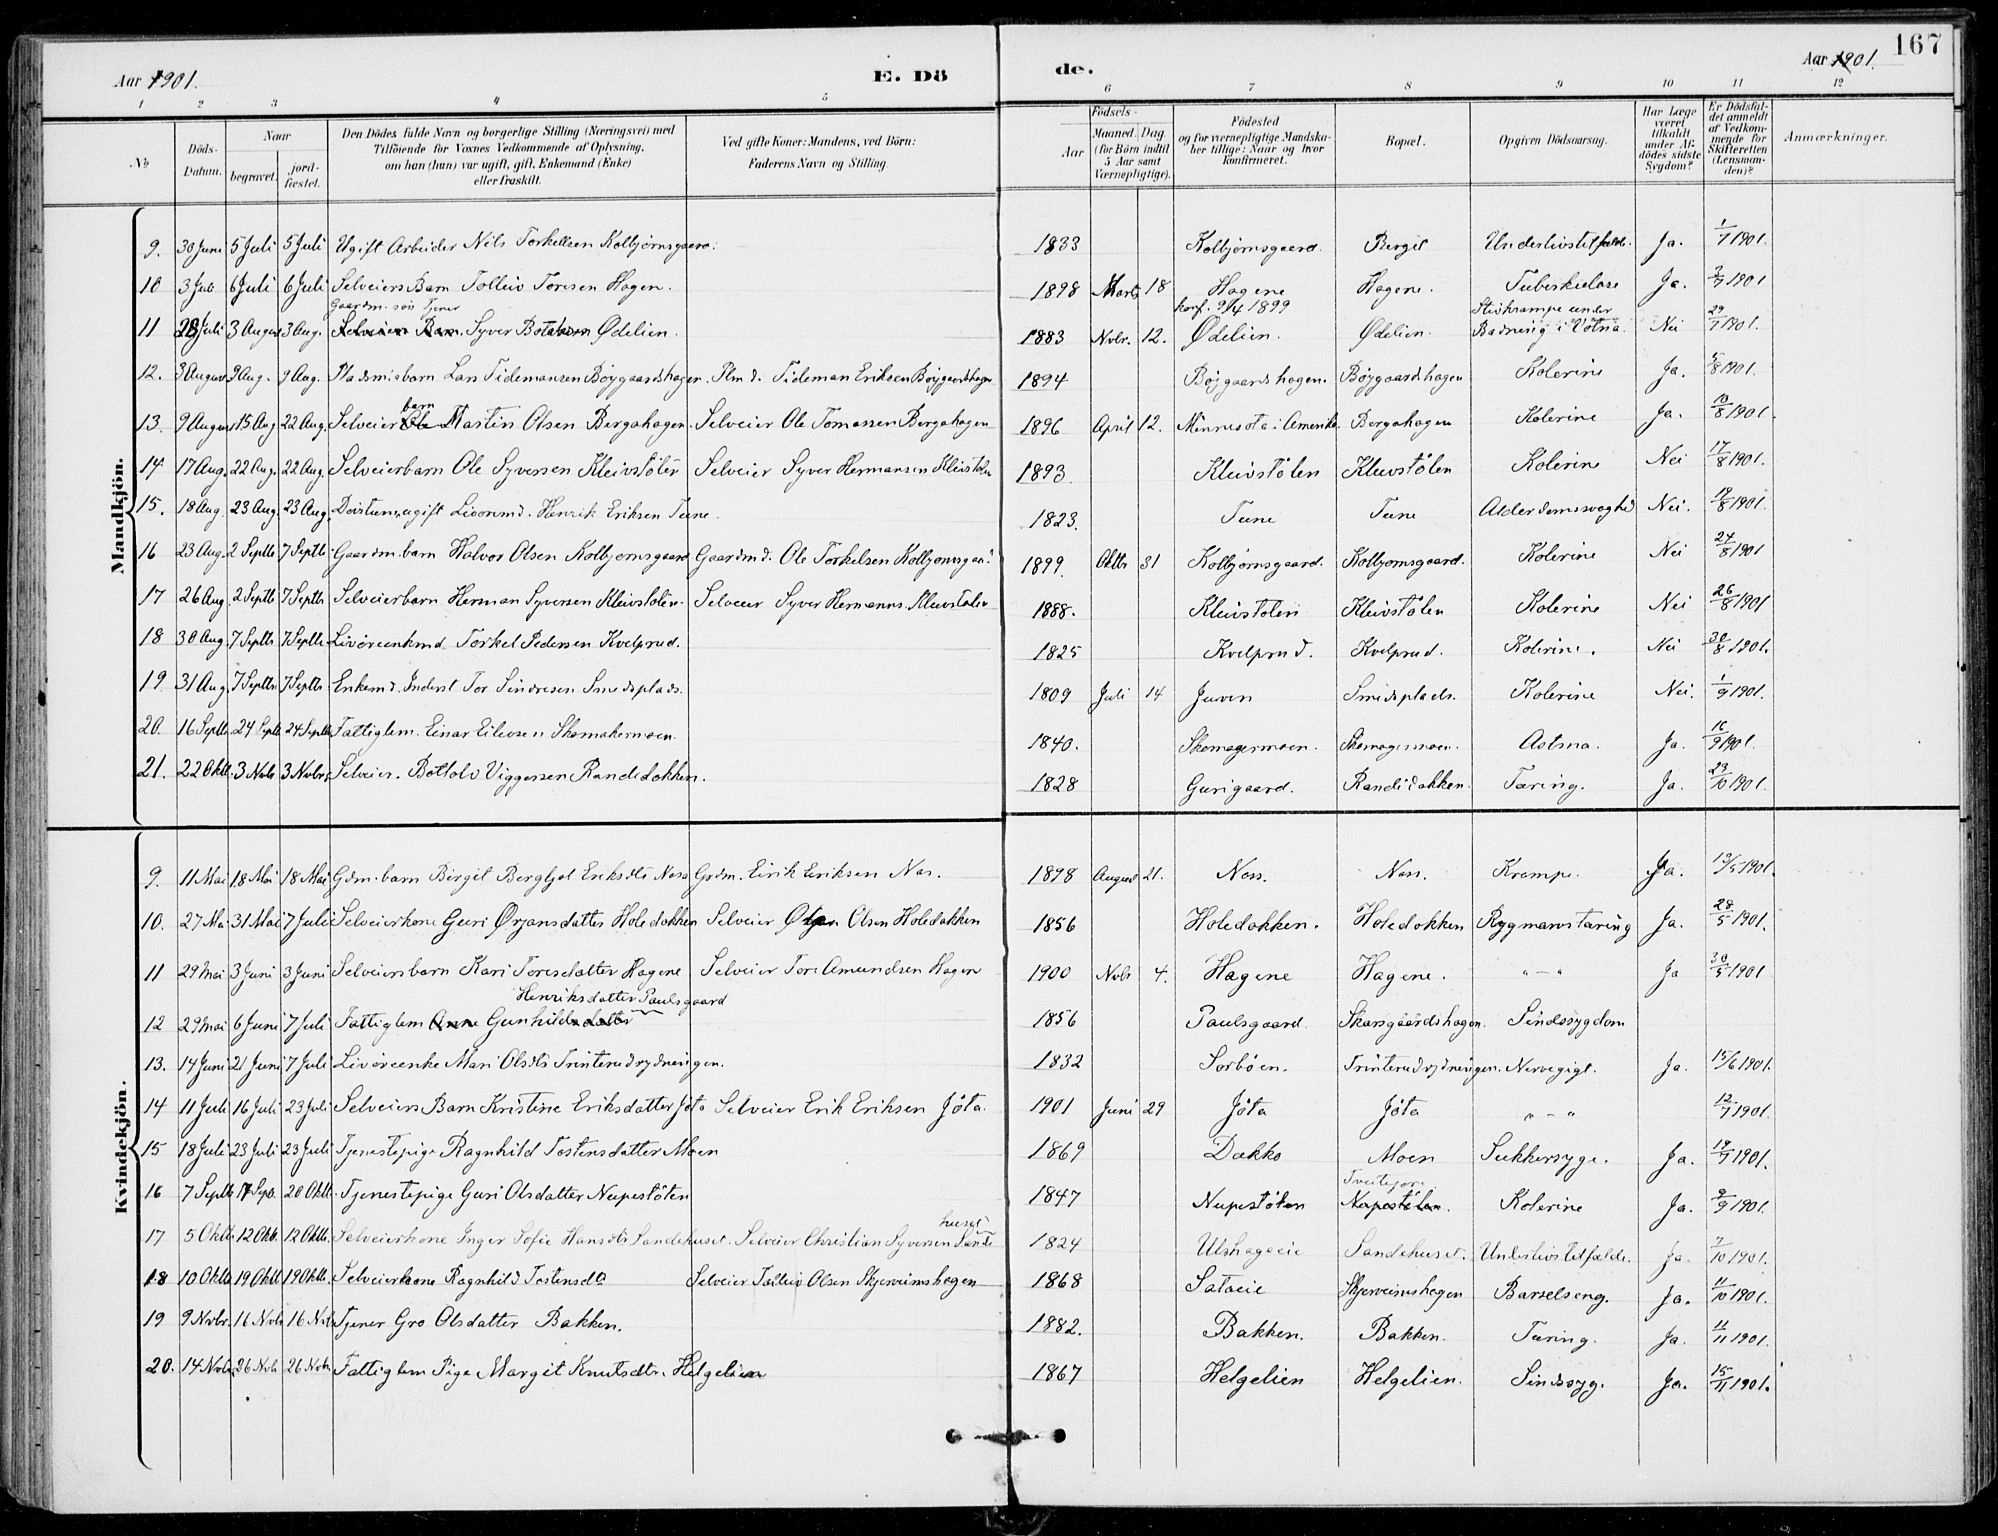 Aar 1901.
E. Döde.
Aar 1901.
167
1 2 3 4 5 6 7 8 9 10 11 12
No
Döds-Datum.
Naar
begravet.
jord-fæstet.
Den Dödes fulde Navn og borgerlige Stilling (Næringsvei) med Tilföiende for Voxnes Vedkommende af Oplysning, om han (hun) var ugift, gift, Enkemand (Enke) eller fraskilt.
Ved gifte Koner: Mandens, ved Börn: Faderens Navn og Stilling.
Födsels-
Aar
Maaned. Dag.
(for Börn indtil 5 Aar samt Værnepligtige).
Födested
og for værnepligtige Mandskaber tillige: Naar og hvor konfirmeret.
Bopæl.
Opgiven Dödsaarsag.
Har Læge været tilkaldt under Afdödes sidste Sygdom?
Er Dödsfaldet anmeldt af Vedkommende for Skifteretten (Lensmanden)?
Anmærkninger.
Mandkjön.
9. 30 Juni 5 Juli 5 Juli Ugift Arbeider Nils Torkelsen Kolbjørnsgaard. 1833 Kolbjørnsgaard. Bergit Underlivstilfælde. Ja. 1/7 1901.
10 3 Juli 6 Juli 6 Juli Selveiers Barn Tolleiv Toresen Hagen. 1898 Marts 18 Hagene Hagene. Tuberkulose Ja. 3/7 1901
Gaardm. søn Tjener konf. 9/4 1899 Stivkrampe under
11 28 Juli 3 August 3 Aug. Selveier Barn Syver Ødelien. 1883 Novbr. 12. Ødelien. Ødelien. Badning i Votna. Nei 29/7 1901.
12. 3 August 9 Aug. 9 Aug. Pladsmisbarn Lars Tidemansen Bøygaardshagen. Plmd. Tideman Eriksen Bøygaardshagen 1894 Bøygaardshagen. Bøygaardshagen Kolerine Ja. 5/8 1901.
13. 9 August 15 Aug 22 Aug. Selveierbarn Ole Martin Olsen Bergahagen. Selveier Ole Tomassen Bergahagen 1896 April 12. Minnesota i Amerika. Bergahagen Kolerine Ja. 10/8 1901.
14 17 Aug. 22 Aug. 22 Aug. Selveierbarn Ole Syversen Kleivstølen Selveier Syver Hermansen Kleivstølen 1893. Kleivstølen Kleivstølen Kolerine Nei 17/8 1901.
15. 18 Aug. 23 Aug. 23 Aug. Døvstum, ugift Livøremd. Henrik Eriksen Tune. 1823. Tune Tune Alderdomssvaghed Nei. 19/8 1901.
16 23 Aug. 2 Septb 7 Septb Gaardm. barn Halvor Olsen Kolbjørnsgaard Gaardmd. Ole Torkelsen Kolbjørnsgaard 1899. Oktb 31 Kolbjørnsgaard. Kolbjørnsgaard. Kolerine Nei 24/8 1901
17 26 Aug. 2 Septb 7 Septb Selveierbarn Herman Syversen Kleivstølen. Selveier Syver Hermanns. Kleivstølen 1888. Kleivstølen Kleivstølen Kolerine Nei 26/8 1901
18 30 Aug. 7 Septb 7 Septb. Livøreenkmd. Torkel Pedersen Kvelprud. 1825 Kvelprud. Kvelprud. Kolerine. Nei 30/8 1901.
19. 31 Aug. 7 Septb 7 Septb Enkemd. Inderst Tor Sindresen Smedsplads. 1809 Juli 14 Juven Smedsplads. Kolerine Nei. 1/9 1901.
20. 16 Septb. 24 Septb 24 Septb Fattiglem. Einar Eilevsen Skomakermoen. 1840. Skomagermoen. Skomagermoen. Astma. Ja. 16/9 1901.
21. 22 Oktb. 3 Nvbr 3 Nvbr. Selveier. Bottolv Viggersen Randidokken. 1828 Gurigaard. Randidokken. Tæring. Ja. 23/10 1901.
Kvindekjön.
9. 11 Mai 18 Mai 18 Mai Gdm. barn Birgit Bergljot Eriksdtr Næss Grdm. Eirik Eriksen Næs. 1898 August 21. Næss. Næss. Krampe. Ja. 13/5 1901.
10. 27 Mai 31 Mai 7 Juli Selveierkone Guri Ørjansdatter Holedokken Selveier Olsen Holedokken 1856 Holedokken. Holedokken Rygmarvstæring Ja. 28/5 1901.
11 29 Mai 3 Juni 3 Juni Selveiersbarn Kari Toresdatter Hagene Selveier Tore Amundsen Hagen 1900 Nvbr 4. Hagene Hagene. " — " Ja 30/5 1901
Henriksdatter Paulsgaard
12 29 Mai 6 Juni 7 Juli Fattiglem Anne Gunhildsdatter 1856 Paulsgaard. Skarsgaardshagen. Sindssygdom
13. 14 Juni 21 Juni 7 Juli Livøreenke Mari Olsdtr Trinterudrydningen. 1832 Sorbøen. Trinterudrydningen. Nervegigt. Ja. 15/6 1901.
14 11 Juli 16 Juli 23 Juli Selveiers Barn Kristine Eriksdatter Jøta Selveier Erik Eriksen Jøta. 1901 Juni 29 Jøta Jøta " — " 12/7 1901.
15 18 Juli 23 Juli 23 Juli Tjenestepige Ragnhild Tostensdatter Moen 1869 Dokko Moen Sukkersyge. Ja. 19/7 1901.
Tveitejore
16 7 Septb 17 Sep. 20 Oktb. Tjenestepige Guri Olsdatter Nupestølen 1847 Nupestølen Nupestølen. Kolerine Ja. 9/9 1901.
huset
17 5 Oktb 12 Oktb. 12 Oktb. Selveierkone Inger Sofie Hansdtr Sandehuset. Selveier Christian Syversen Sande 1824 Ulshageeie Sandehuset. Underlivstilfælde. Ja. 7/10 1901.
18 10 Oktb 19 Oktb 19 Oktb. Selveierkone Ragnhild Tostensda Selveier Tolleiv Olsen Skjerveimshagen 1868 Sataeie Skjerveimshagen Barselseng. Ja. 11/10 1901.
19 9 Nvbr. 16 Nvbr 16 Nvb Tjener Gro Olsdatter Bakken. 1882. Bakken. Bakken. Tæring. Ja. 11/11 1901.
20. 14 Nvbr. 26 Nvb 26 Nvbr. Fattiglem Pige Margit Knutsdtr. Helgelien 1867 Helgelien Helgelien. Sindssyg. Ja. 15/11 1901.